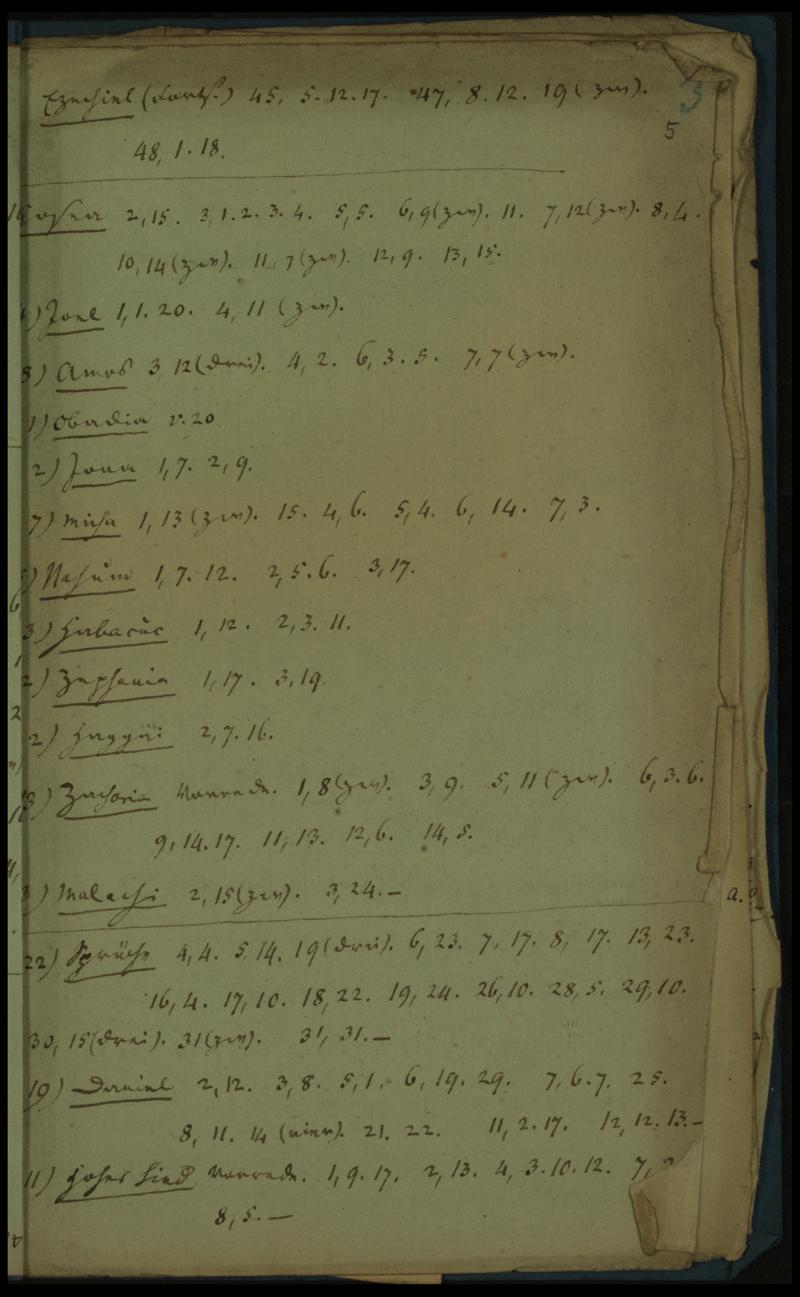 Ezechiel (Forts.) 45, 5. 12. 17. 47, 8. 12. 19 (zw).
5
48, 1. 18.
Hosea 2, 15. 3, 1. 2. 3. 4. 5, 5. 6, 9 (zw). 11. 7, 12 (zw). 8, 4.
10, 14 (zw). 11, 7 (zw). 12, 9. 13, 15.
) Joel 1, 1. 20. 4, 11 (zw).
8) Amos 3, 12 (drei). 4, 2. 6, 3. 5. 7, 7 (zw).
1) Obadia v. 20
2) Jona 1, 7. 2, 9.
7) Micha 1, 13 (zw). 15. 4, 6. 5, 4. 6, 14. 7, 3.
) Nahum 1, 7. 12. 2, 5. 6. 3, 17.
3) Habacuc 1, 12. 2, 3. 11.
2) Zephania 1, 17. 3, 19.
2) Haggai 2, 7. 16.
) Zacharia Vorrede. 1, 8 (zw). 3, 9. 5, 11 (zw). 6, 3. 6.
9, 14. 17. 11, 13. 12, 6. 14, 5.
) Maleachi 2, 15 (zw). 3, 24. —
a.
22) Sprüche 4, 4. 5, 14. 19 (drei). 6, 23. 7, 17. 8, 17. 13, 23.
16, 4. 17, 10. 18, 22. 19, 24. 26, 10. 28, 5. 29, 10.
30, 15 (drei). 31 (zw). 31, 31. —
19) Daniel 2, 12. 3, 8. 5, 1. 6, 19. 29. 7, 6. 7. 25.
8, 11. 14 (vier). 21. 22. 11, 2. 17. 12, 12. 13. —
11) Hohes Lied Vorrede. 1, 9. 17. 2, 13. 4, 3. 10. 12. 7,
8, 5. —